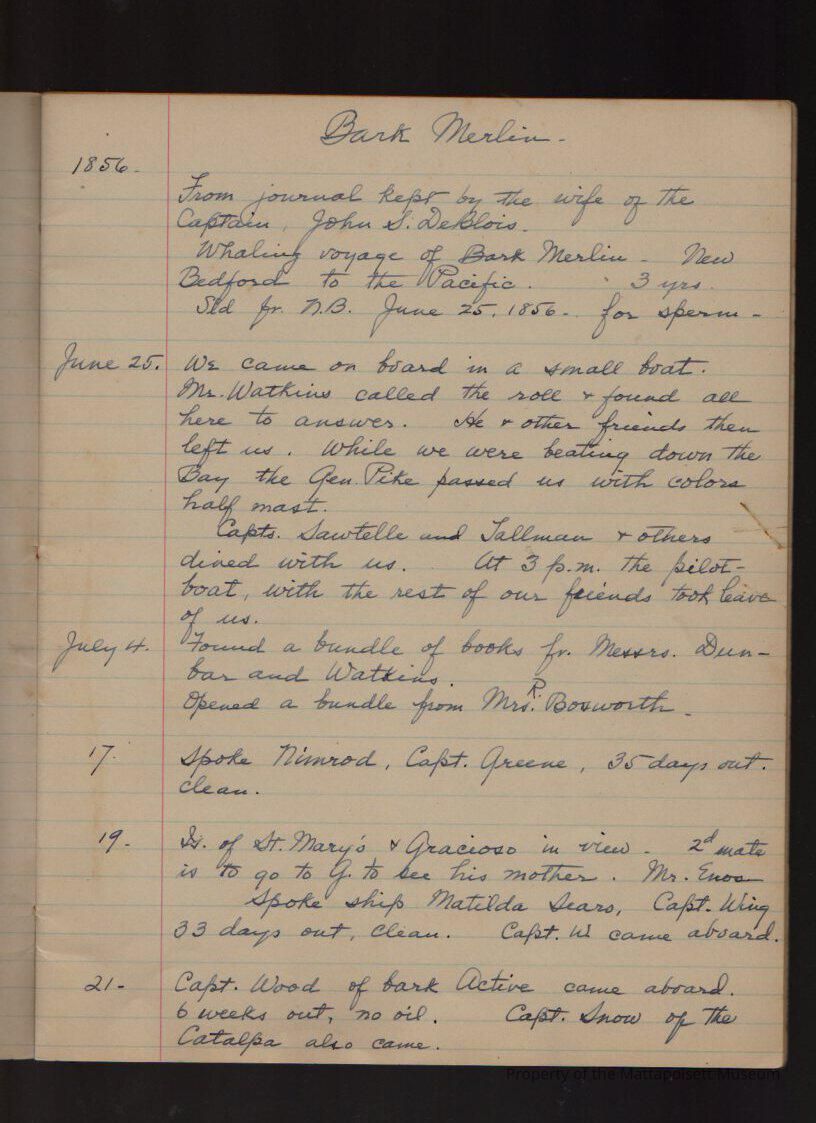 Bark Merlin -
1856.
From journal kept by the wife of the
Captain, John S. DeBlois.
Whaling voyage of Bark Merlin - New
Bedford to the Pacific. 3 yrs.
Sld fr. N.B. June 25, 1856 - for sperm -
June 25. We came on board in a small boat.
Mr. Watkins called the roll & found all
here to answer. He & other friends then
left us. While we were beating down the
Bay the Gen. Pike passed us with colors
half mast.
Capts. Sawtelle and Tallman & others
dined with us. At 3 p.m. the pilot-
boat, with the rest of our friends took leave
of us.
July 4. Found a bundle of books fr. Messrs. Dun-
bar and Watkins.
Opened a bundle from Mrs. R. Bosworth -
17. Spoke Nimrod, Capt. Greene, 35 days out.
clean.
19. Is. of St. Mary's & Gracioso in view - 2d mate
is to go to G. to see his mother. Mr. Enos
Spoke ship Matilda Sears, Capt. Wing
33 days out, clean. Capt. W. came aboard.
21. Capt. Wood of bark Active came aboard.
6 weeks out, no oil. Capt. Snow of the
Catalpa also came.
Property of the Mattapoisett Museum